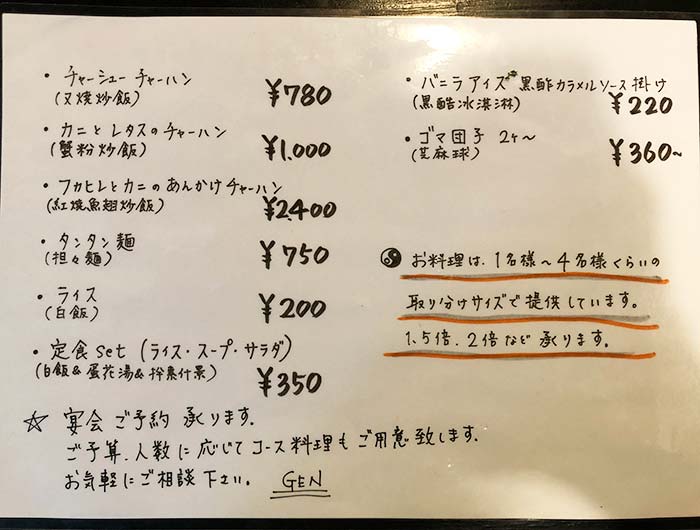 ・チャーシューチャーハン ¥780
(叉焼炒飯)
・カニとレタスのチャーハン ¥1,000
(蟹粉炒飯)
・フカヒレとカニのあんかけチャーハン
(紅焼魚翅炒飯) ¥2400
・タンタン麺 ¥750
(担々麺)
・ライス ¥200
(白飯)
・定食set(ライス・スープ・サラダ)
(白飯&蛋花湯&拌素什景) ¥350
☆ 宴会ご予約承ります.
ご予算.人数に応じてコース料理もご用意致します.
お気軽にご相談下さい。 GEN
・バニラアイス 黒酢カラメルソース掛け
(黒醋冰淇淋) ¥220
・ゴマ団子 2ヶ〜 ¥360~
(芝麻球)
☯ お料理は.1名様〜4名様くらいの
取り分けサイズで提供しています。
1.5倍.2倍など承ります。